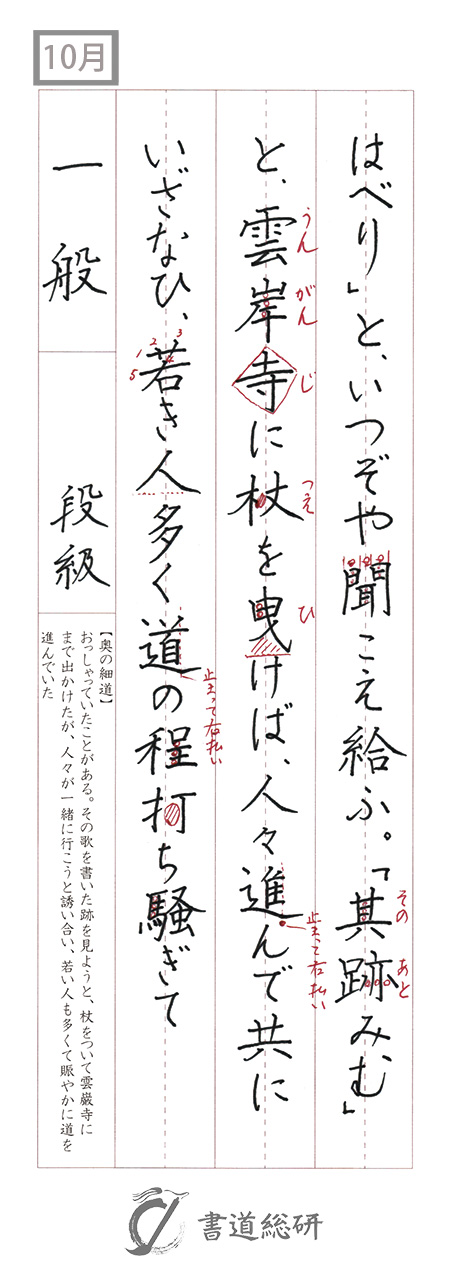 10月
はべり」と、いつぞや聞こえ給ふ。「其跡みむ」
その あと
と、雲岸寺に杖を曳けば、人々進んで共に
うん がん じ つえ ひ
止まって右払い
いざなひ、若き人多く道の程打ち騒ぎて
1 2 3 4 5
止まって右払い
一般
段級
【奥の細道】
おっしゃっていたことがある。その歌を書いた跡を見ようと、杖をついて雲巌寺に
まで出かけたが、人々が一緒に行こうと誘い合い、若い人も多くて賑やかに道を
進んでいた
書道総研